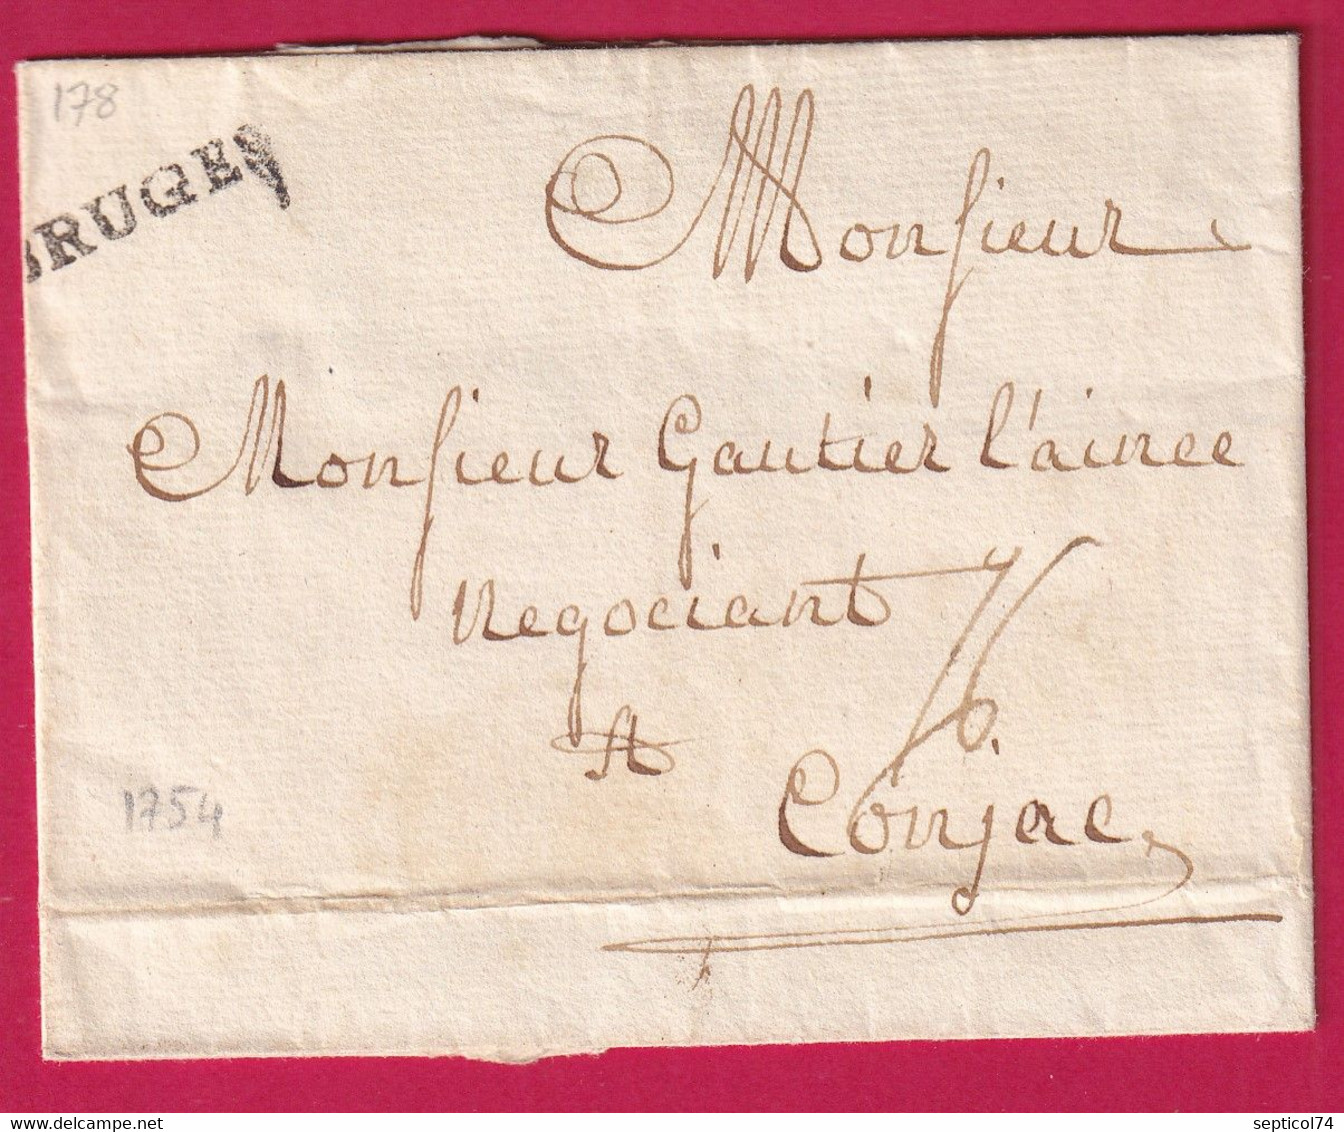 178
BRUGES
Monsieur
Monsieur Gautier l'ainee
Negociant
A
Conjac
1754
delcampe.net
septicol74